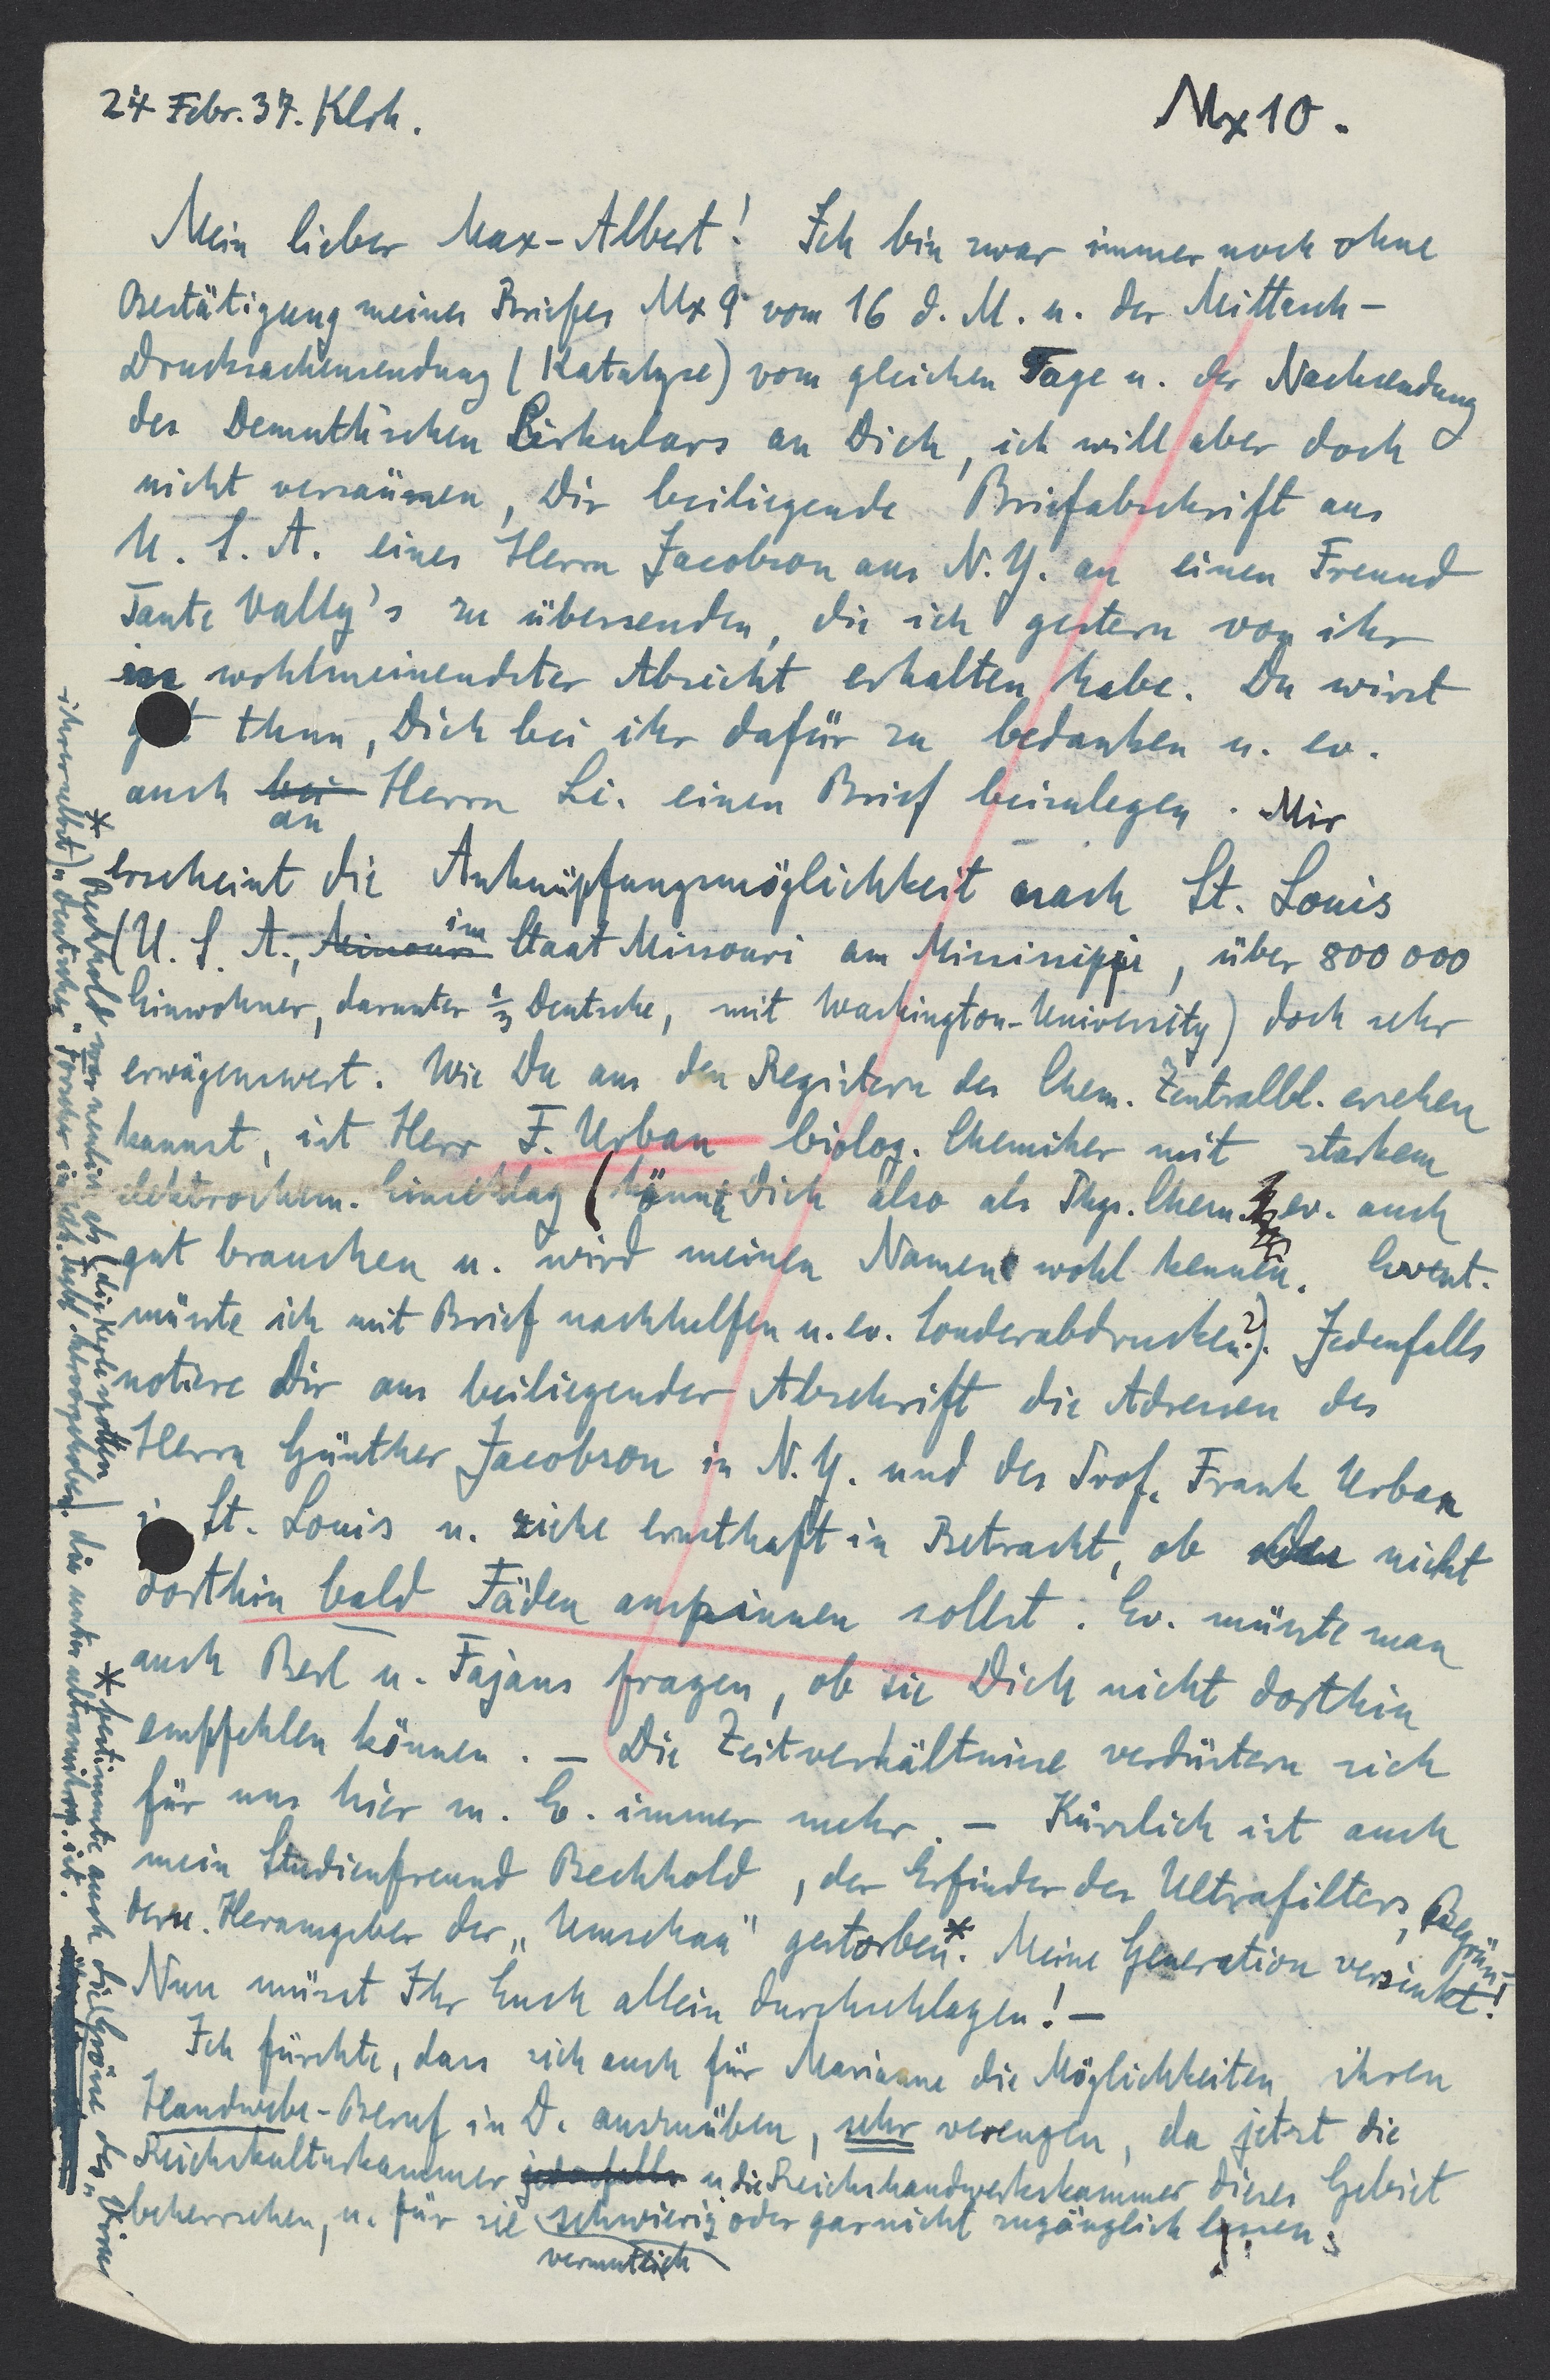 24 Febr. 37. Klrh.
Mx 10.
Mein lieber Max-Albert! Ich bin zwar immer noch ohne
Bestätigung meines Briefes Mx 9 vom 16 d. M. u. der Mittasch-
Drucksachensendung (Katalyse) vom gleichen Tage u. der Nachsendung
des Demuth'schen Cirkulars an Dich, ich will aber doch
nicht versäumen, Dir beiliegende Briefabschrift aus
U. S. A. eines Herrn Jacobson aus N. Y. an einen Freund
Tante Vally's zu übersenden, die ich gestern von ihr
in wohlmeinendster Absicht erhalten habe. Du wirst
gut thun, Dich bei ihr dafür zu bedanken u. ev.
auch bei Herrn Li. einen Brief beizulegen. Mir
an
erscheint die Anknüpfungsmöglichkeit nach St. Louis
(U. S. A., Missouri im Staat Missouri am Mississippi, über 800 000
Einwohner, darunter 1/3 Deutsche, mit Washington-University) doch sehr
erwägenswert. Wie Du aus den Registern des Chem. Zentralbl. ersehen
kannst, ist Herr F. Urban biolog. Chemiker mit starkem
elektrochem. Einschlag (könnte Dich also als Phys. Chem. ev. auch
gut brauchen u. wird meinen Namen wohl kennen. Event.
müsste ich mit Brief nachhelfen u. ev. Sonderabdrucken?). Jedenfalls
notiere Dir aus beiliegender Abschrift die Adressen des
Herrn Günther Jacobson in N. Y. und des Prof. Frank Urban
in St. Louis u. ziehe ernsthaft in Betracht, ob Du nicht
dorthin bald Fäden anspinnen sollst. Ev. müsste man
auch Berl u. Fajans fragen, ob sie Dich nicht dorthin
empfehlen können. – Die Zeitverhältnisse verdüstern sich
für uns hier m. E. immer mehr. – Kürzlich ist auch
mein Studienfreund Bechhold, der Erfinder des Ultrafilters, Begrün-
der u. Herausgeber der „Umschau" gestorben.* Meine Generation versinkt!
Nun müsst Ihr Euch allein durchschlagen! –
Ich fürchte, dass sich auch für Marianne die Möglichkeiten, ihren
Handwebe-Beruf in D. auszuüben, sehr verengen, da jetzt die
Reichskulturkammer jedenfalls u. die Reichshandwerkskammer dieses Gebiet
beherrschen, u. für sie schwierig oder garnicht zugänglich lassen.
vermutlich
* Bechhold war neulich als (die Kerle spotten
ihrer selbst) „deutscher" Forscher in
* bestimmte auch die Grösse des „Virus